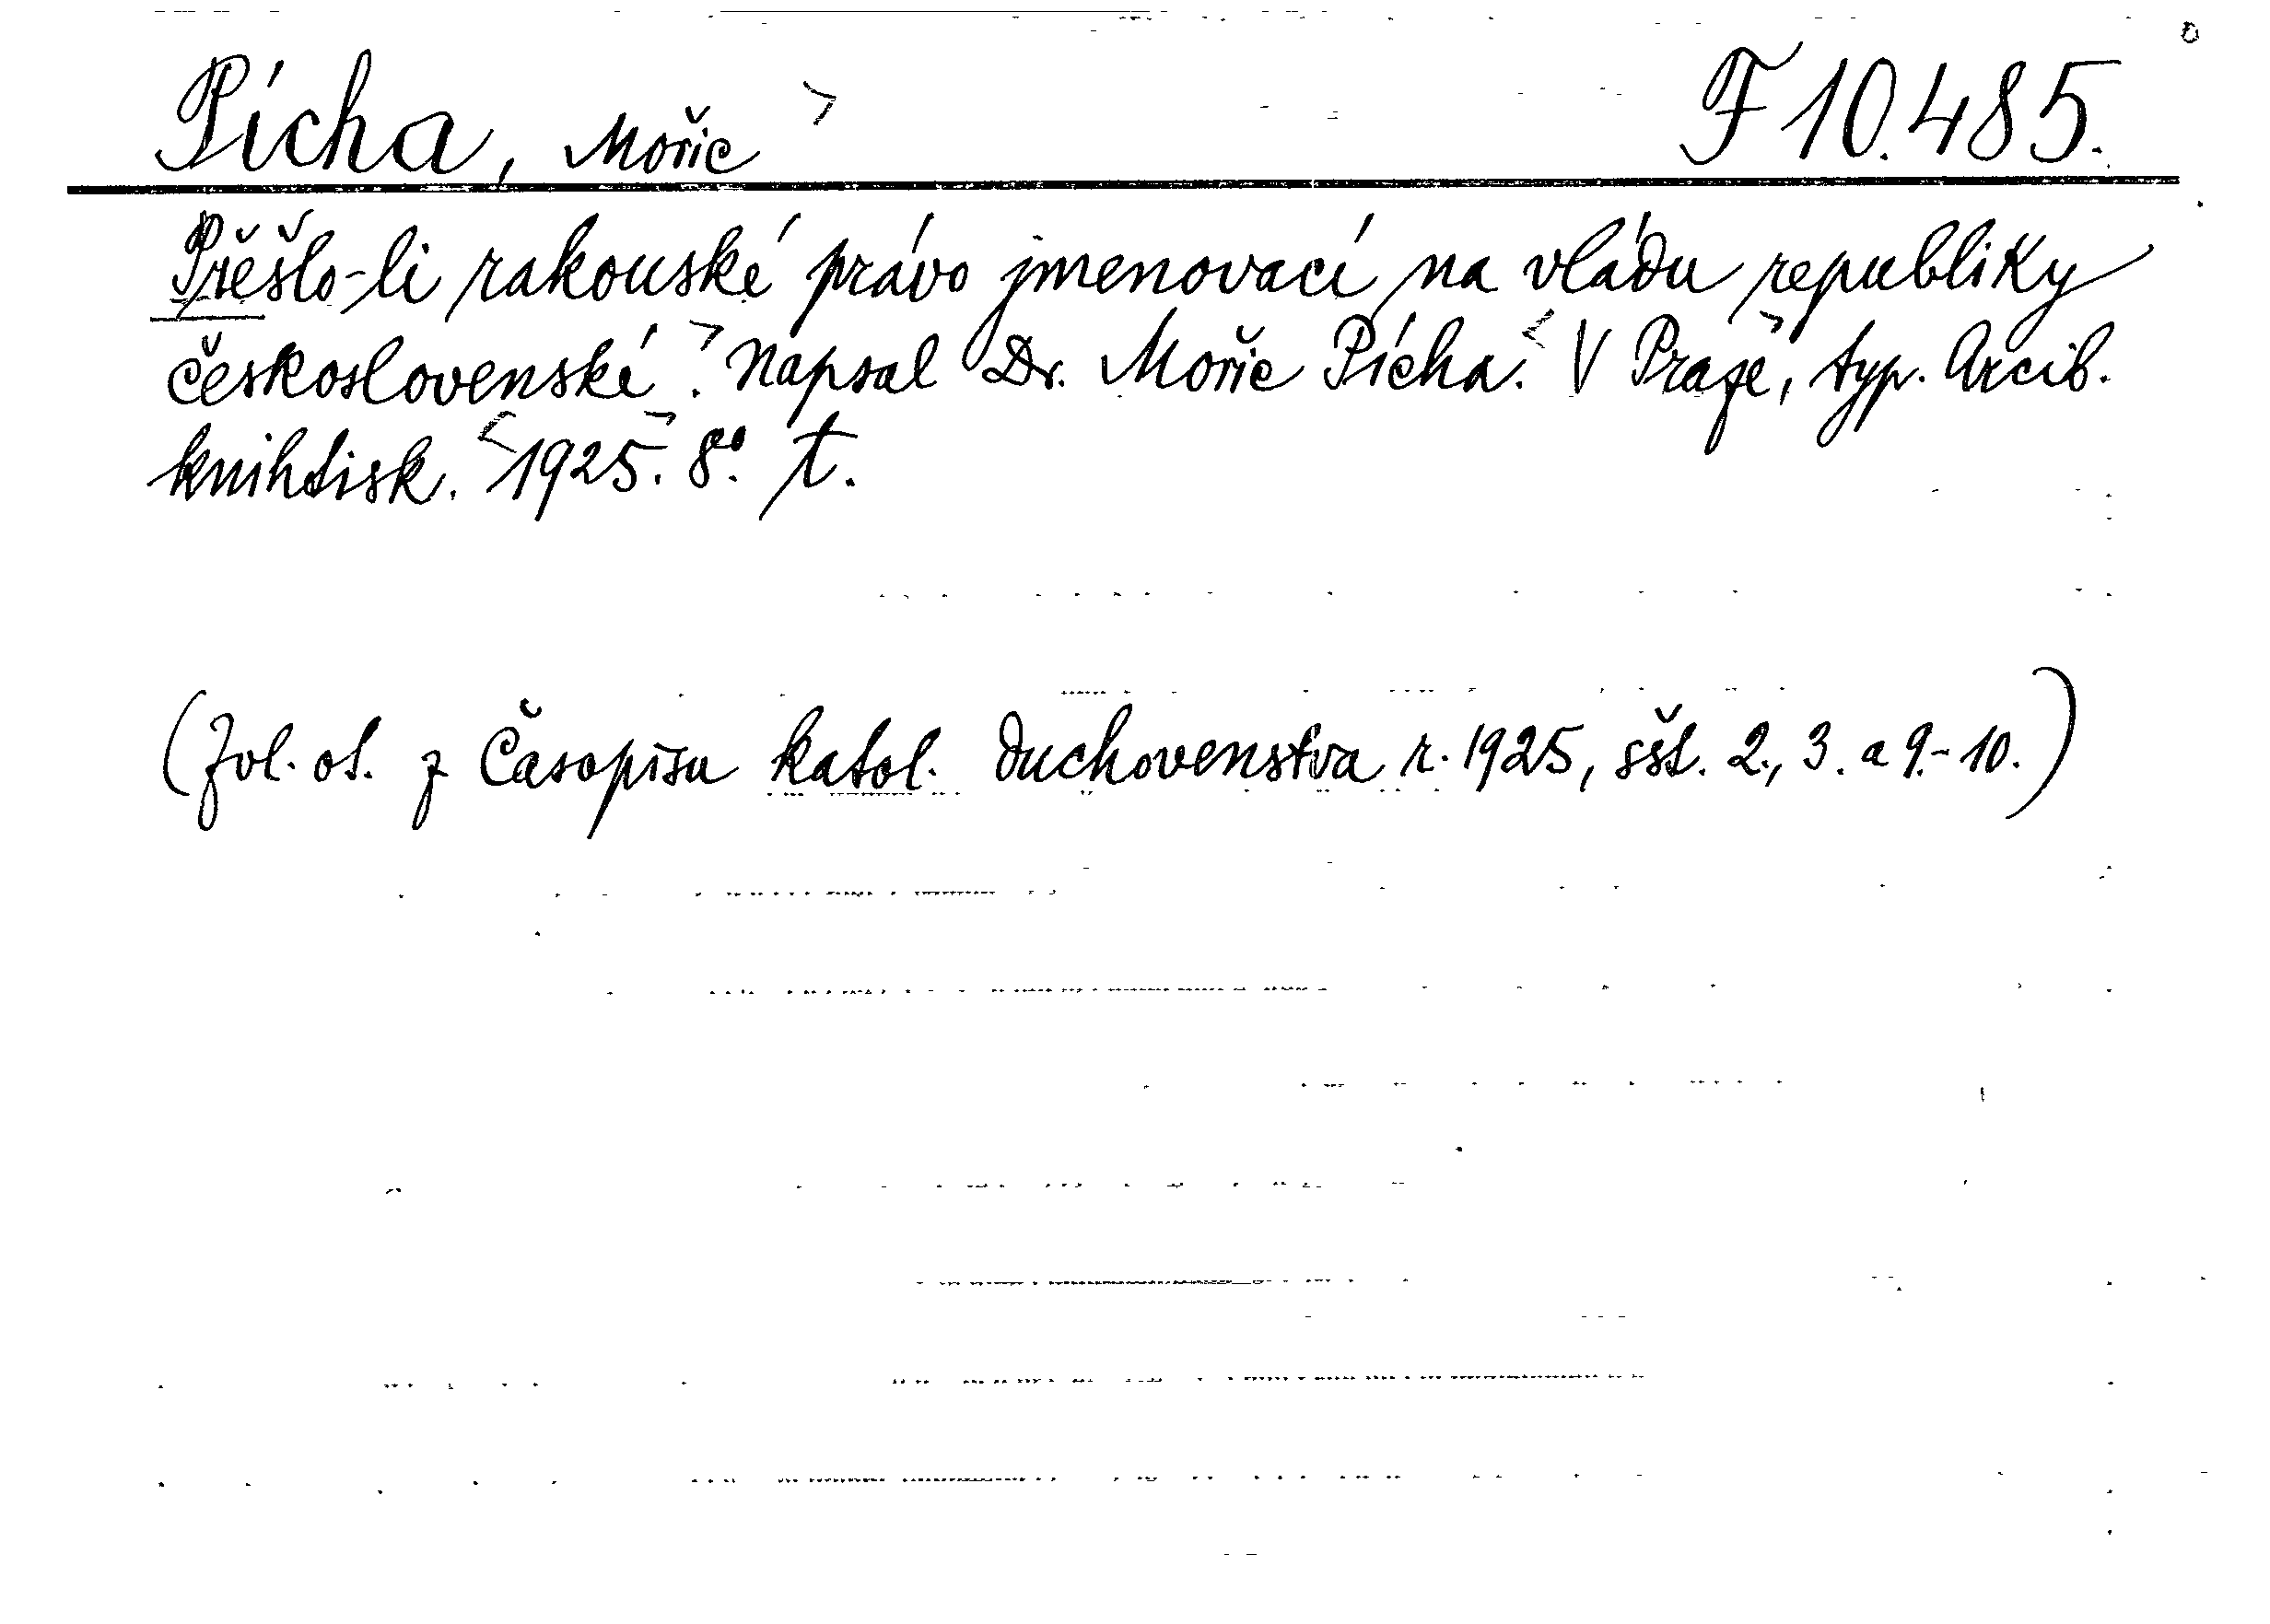 Pícha, Mořic F 10.485.
Přěšlo-li rakouské právo jmenovací na vládu republiky
československé. Napsal Dr. Mořic Pícha. V Praze, typ. Arcib.
knihtisk. 1925. 8°. t.
(Zvl. ot. z Časopisu katol. duchovenstva r. 1925, sšt. 2., 3. a 9.-10.)